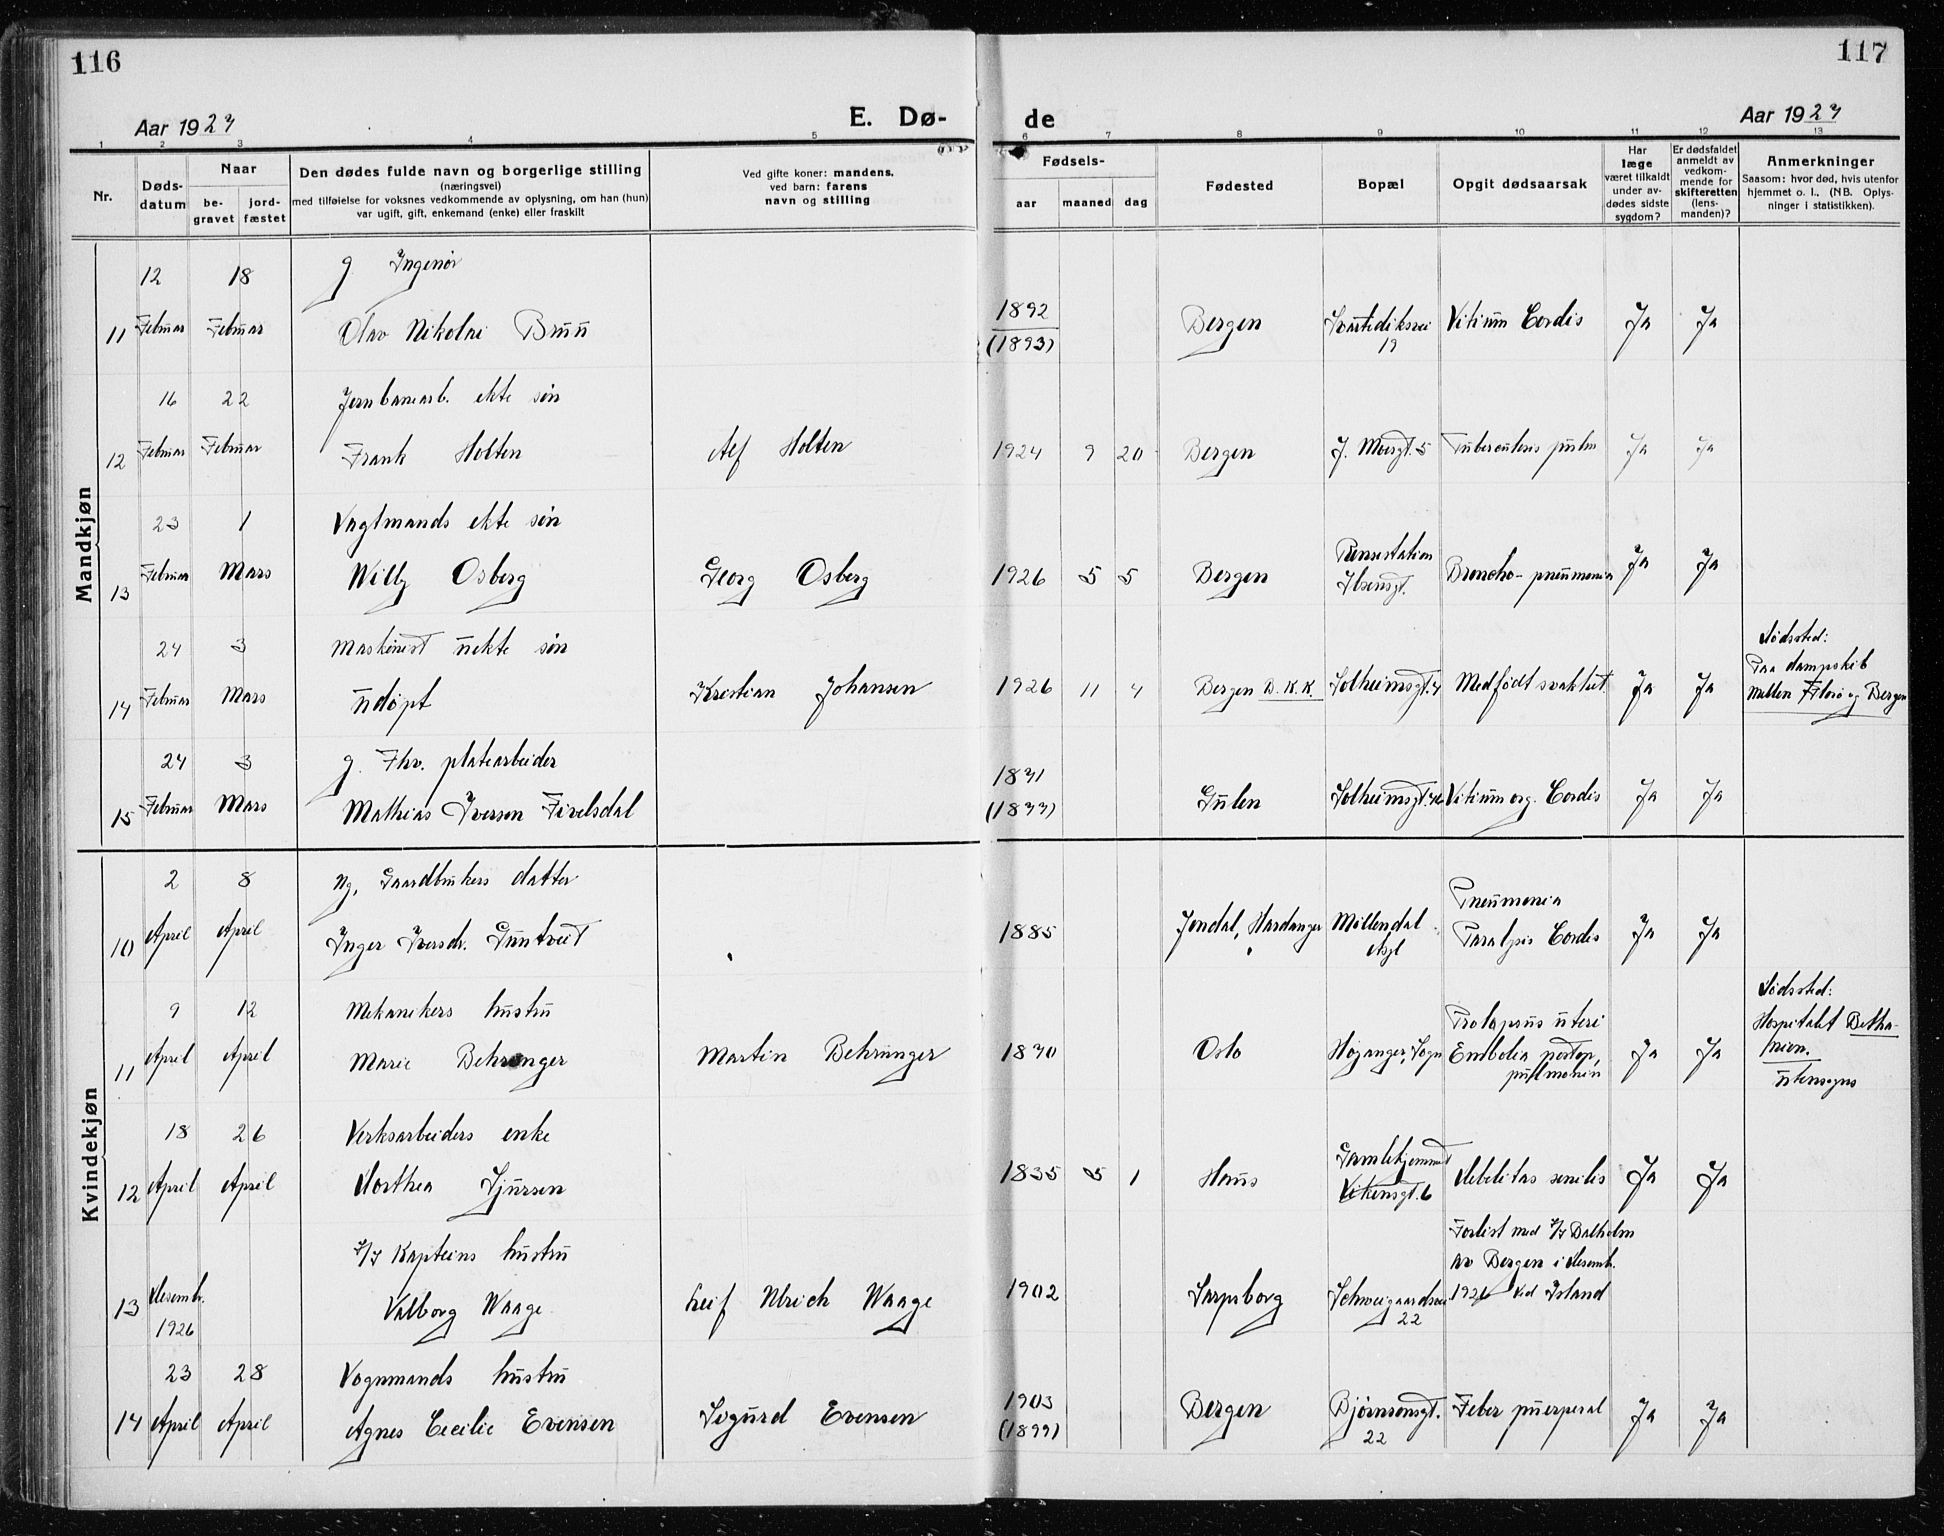 116
117
Aar 1927
E. Dø-
de
Aar 1927
1 2 3 4 5 6 7 8 9 10 11 12 13
Nr.
Døds-
datum
Naar
be-
gravet
jord-
fæstet
Den dødes fulde navn og borgerlige stilling
(næringsvei)
med tilføielse for voksnes vedkommende av oplysning, om han (hun)
var ugift, gift, enkemand (enke) eller fraskilt
Ved gifte koner: mandens,
ved barn: farens
navn og stilling
Fødsels-
aar maaned dag
Fødested
Bopæl
Opgit dødsaarsak
Har
læge
været tilkaldt
under av-
dødes sidste
sygdom?
Er dødsfaldet
anmeldt av
vedkom-
mende for
skifteretten
(lens-
manden)?
Anmerkninger
Saasom: hvor død, hvis utenfor
hjemmet o. l., (NB. Oplys-
ninger i statistikken).
Mandkjøn
12 18 g. Ingeniør
11 Februar Februar Olav Nikolai Bruu 1892 (1893) Bergen 19 Vitium Cordis Ja Ja
16 22 Jernbanearb. ekte søn
12 Februar Februar Frank Holten Alf Holten 1924 9 20 Bergen J. Moesgt. 5 Tuberculosis pulm Ja Ja
23 1 Vagtmands ekte søn
13 Februar Mars Willy Osberg Georg Osberg 1926 5 5 Bergen Rensestation Ibsensgt. Broncho-pneumonia Ja Ja
24 3 Maskinist uekte søn
14 Februar Mars Udøpt Kristian Johansen 1926 11 7 Bergen D. K. K. Solheimsgt. 4 Medfødt svakhet Ja Ja
Dødssted:
Paa dampskib
mellem Florø og Bergen
24 3 g. Fhv. platearbeider
15 Februar Mars Mathias Iversen Fivelsdal 1831 (1833) Gulen Solheimsgt. Vitium org. Cordis Ja Ja
Kvindekjøn
2 8 Ug. Gaardbrukers datter
10 April April Inger Iversdr. Guntveit 1885 Jondal, Hardanger Møllendal Asyl Pneumonia Paralysis Cordis Ja Ja
9 12 Mekanikers hustru
11 April April Marie Behringer Martin Behringer 1870 Oslo Høyanger, Sogn Prolapsus uteri Embolia postop, pulmonum Ja Ja
Dødssted:
Hospitalet Betha-
nien.
utensogns
18 26 Verksarbeiders enke
12 April April Dorthea Sjursen 1835 5 1 Haus Gamlehjemmet Vikensgt. 6 Debilitas senilis Ja Ja
S/S Kapteins hustru
13 Desemb. 1926 Valborg Waage Leif Ulrich Waage 1902 Sarpsborg Schweigaardsvei 22
Forlist med S/S Balholm
av Bergen i Desemb.
1926 ved Island
23 28 Vognmands hustru
14 April April Agnes Cecilie Evensen Sigurd Evensen 1903 (1899) Bergen Bjørnsonsgt. 22 Feber puerperal Ja Ja